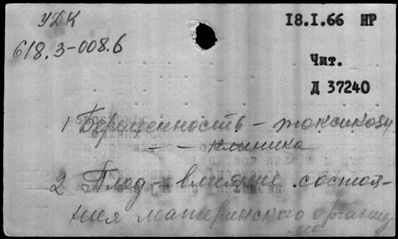 УДК
618.3-008.6
18.I.66 НР
Чит.
Д 37240
1 Беременность - токсикозы
- - клиника
2 Плод - влияние состоя-
ния материнского